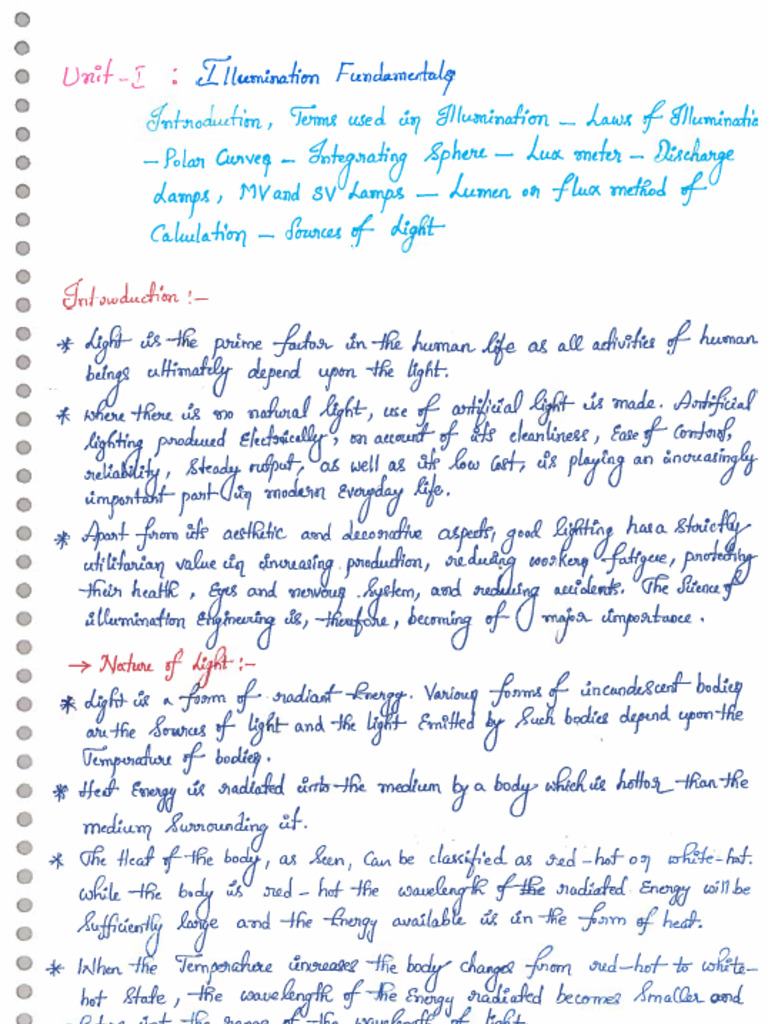 Unit-I : Illumination Fundamentals
Introduction, Terms used in Illumination – Laws of Illuminatio
– Polar Curves – Integrating Sphere – Lux meter – Discharge
Lamps, MV and SV Lamps – Lumen or flux method of
Calculation – Sources of Light
Introduction :–
* Light is the prime factor in the human life as all activities of human
beings ultimately depend upon the light.
* where there is no natural light, use of artificial light is made. Artificial
lighting produced Electrically, on account of its cleanliness, Ease of Control,
reliability, Steady output, as well as its low Cost, is playing an increasingly
important part in modern Everyday life.
* Apart from its aesthetic and decorative aspects, good lighting has a Strictly
utilitarian value in increasing production, reducing workers fatigue, protecting
their health, Eyes and nervous System, and reducing accidents. The Science of
illumination Engineering is, therefore, becoming of major importance.
→ Nature of Light :–
* Light is a form of radiant Energy. Various forms of incandescent bodies
are the Sources of light and the light Emitted by Such bodies depend upon the
Temperature of bodies.
* Heat Energy is radiated into the medium by a body which is hotter than the
medium Surrounding it.
* The Heat of the body, as Seen, Can be classified as red-hot or white-hot.
While the body is red-hot the wavelength of the radiated Energy will be
Sufficiently large and the Energy available is in the form of heat.
* When the Temperature increases the body changes from red-hot to white-
hot State, the wavelength of the Energy radiated becomes Smaller and
the range of the wavelength of light